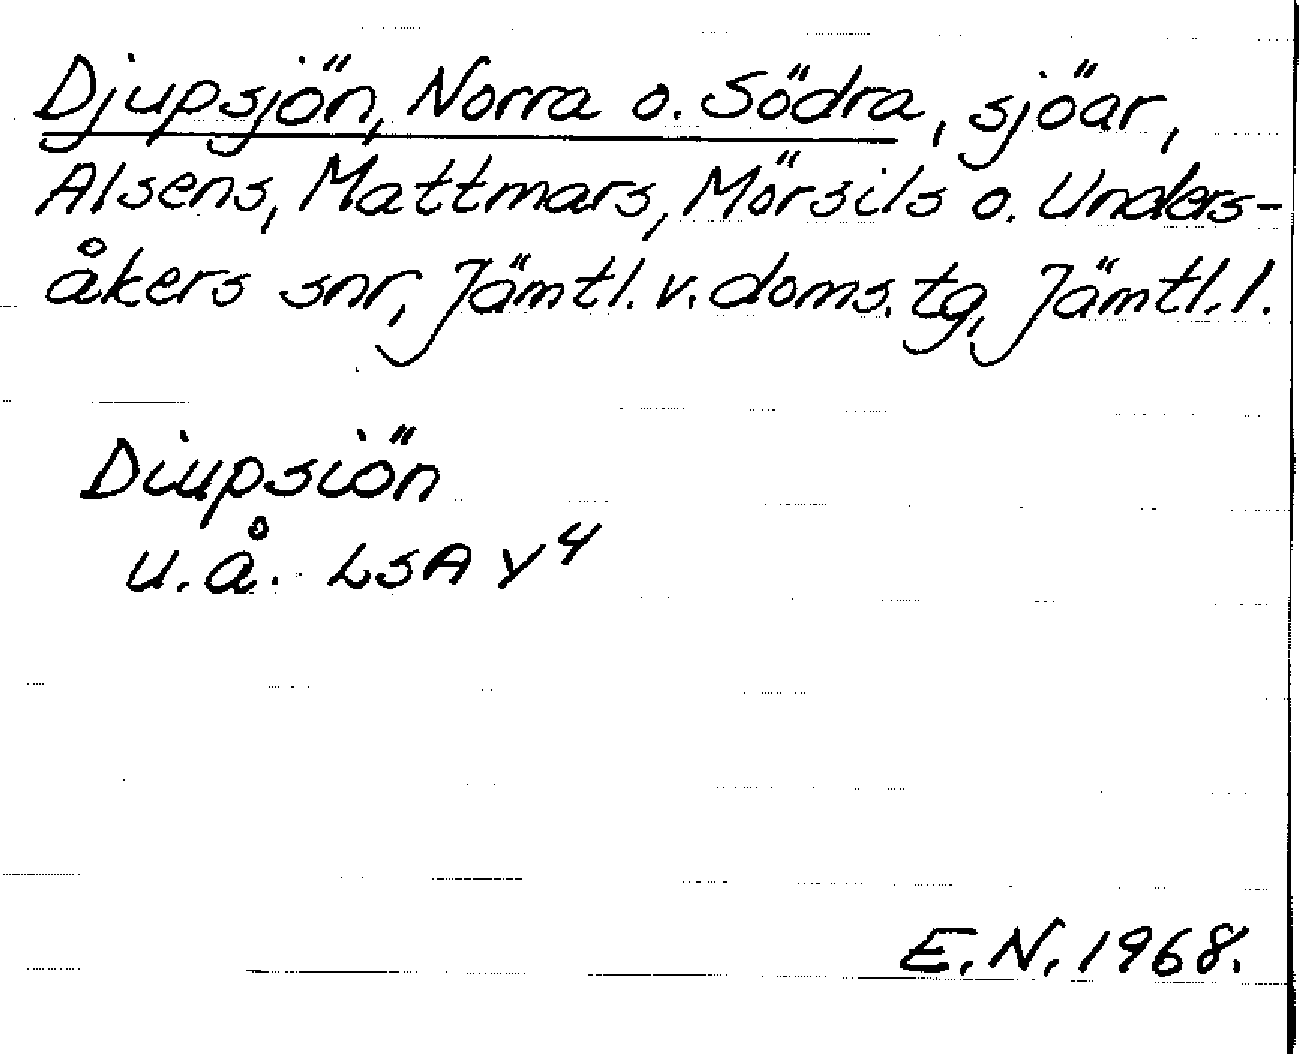 Djupsjön, Norra o. Södra, sjöar,
Alsens, Mattmars, Mörsils o. Unders-
åkers snr, Jämtl. v. doms. tg, Jämtl. l.
Diupsiön
u.å. LSA Y4
E.N. 1968.